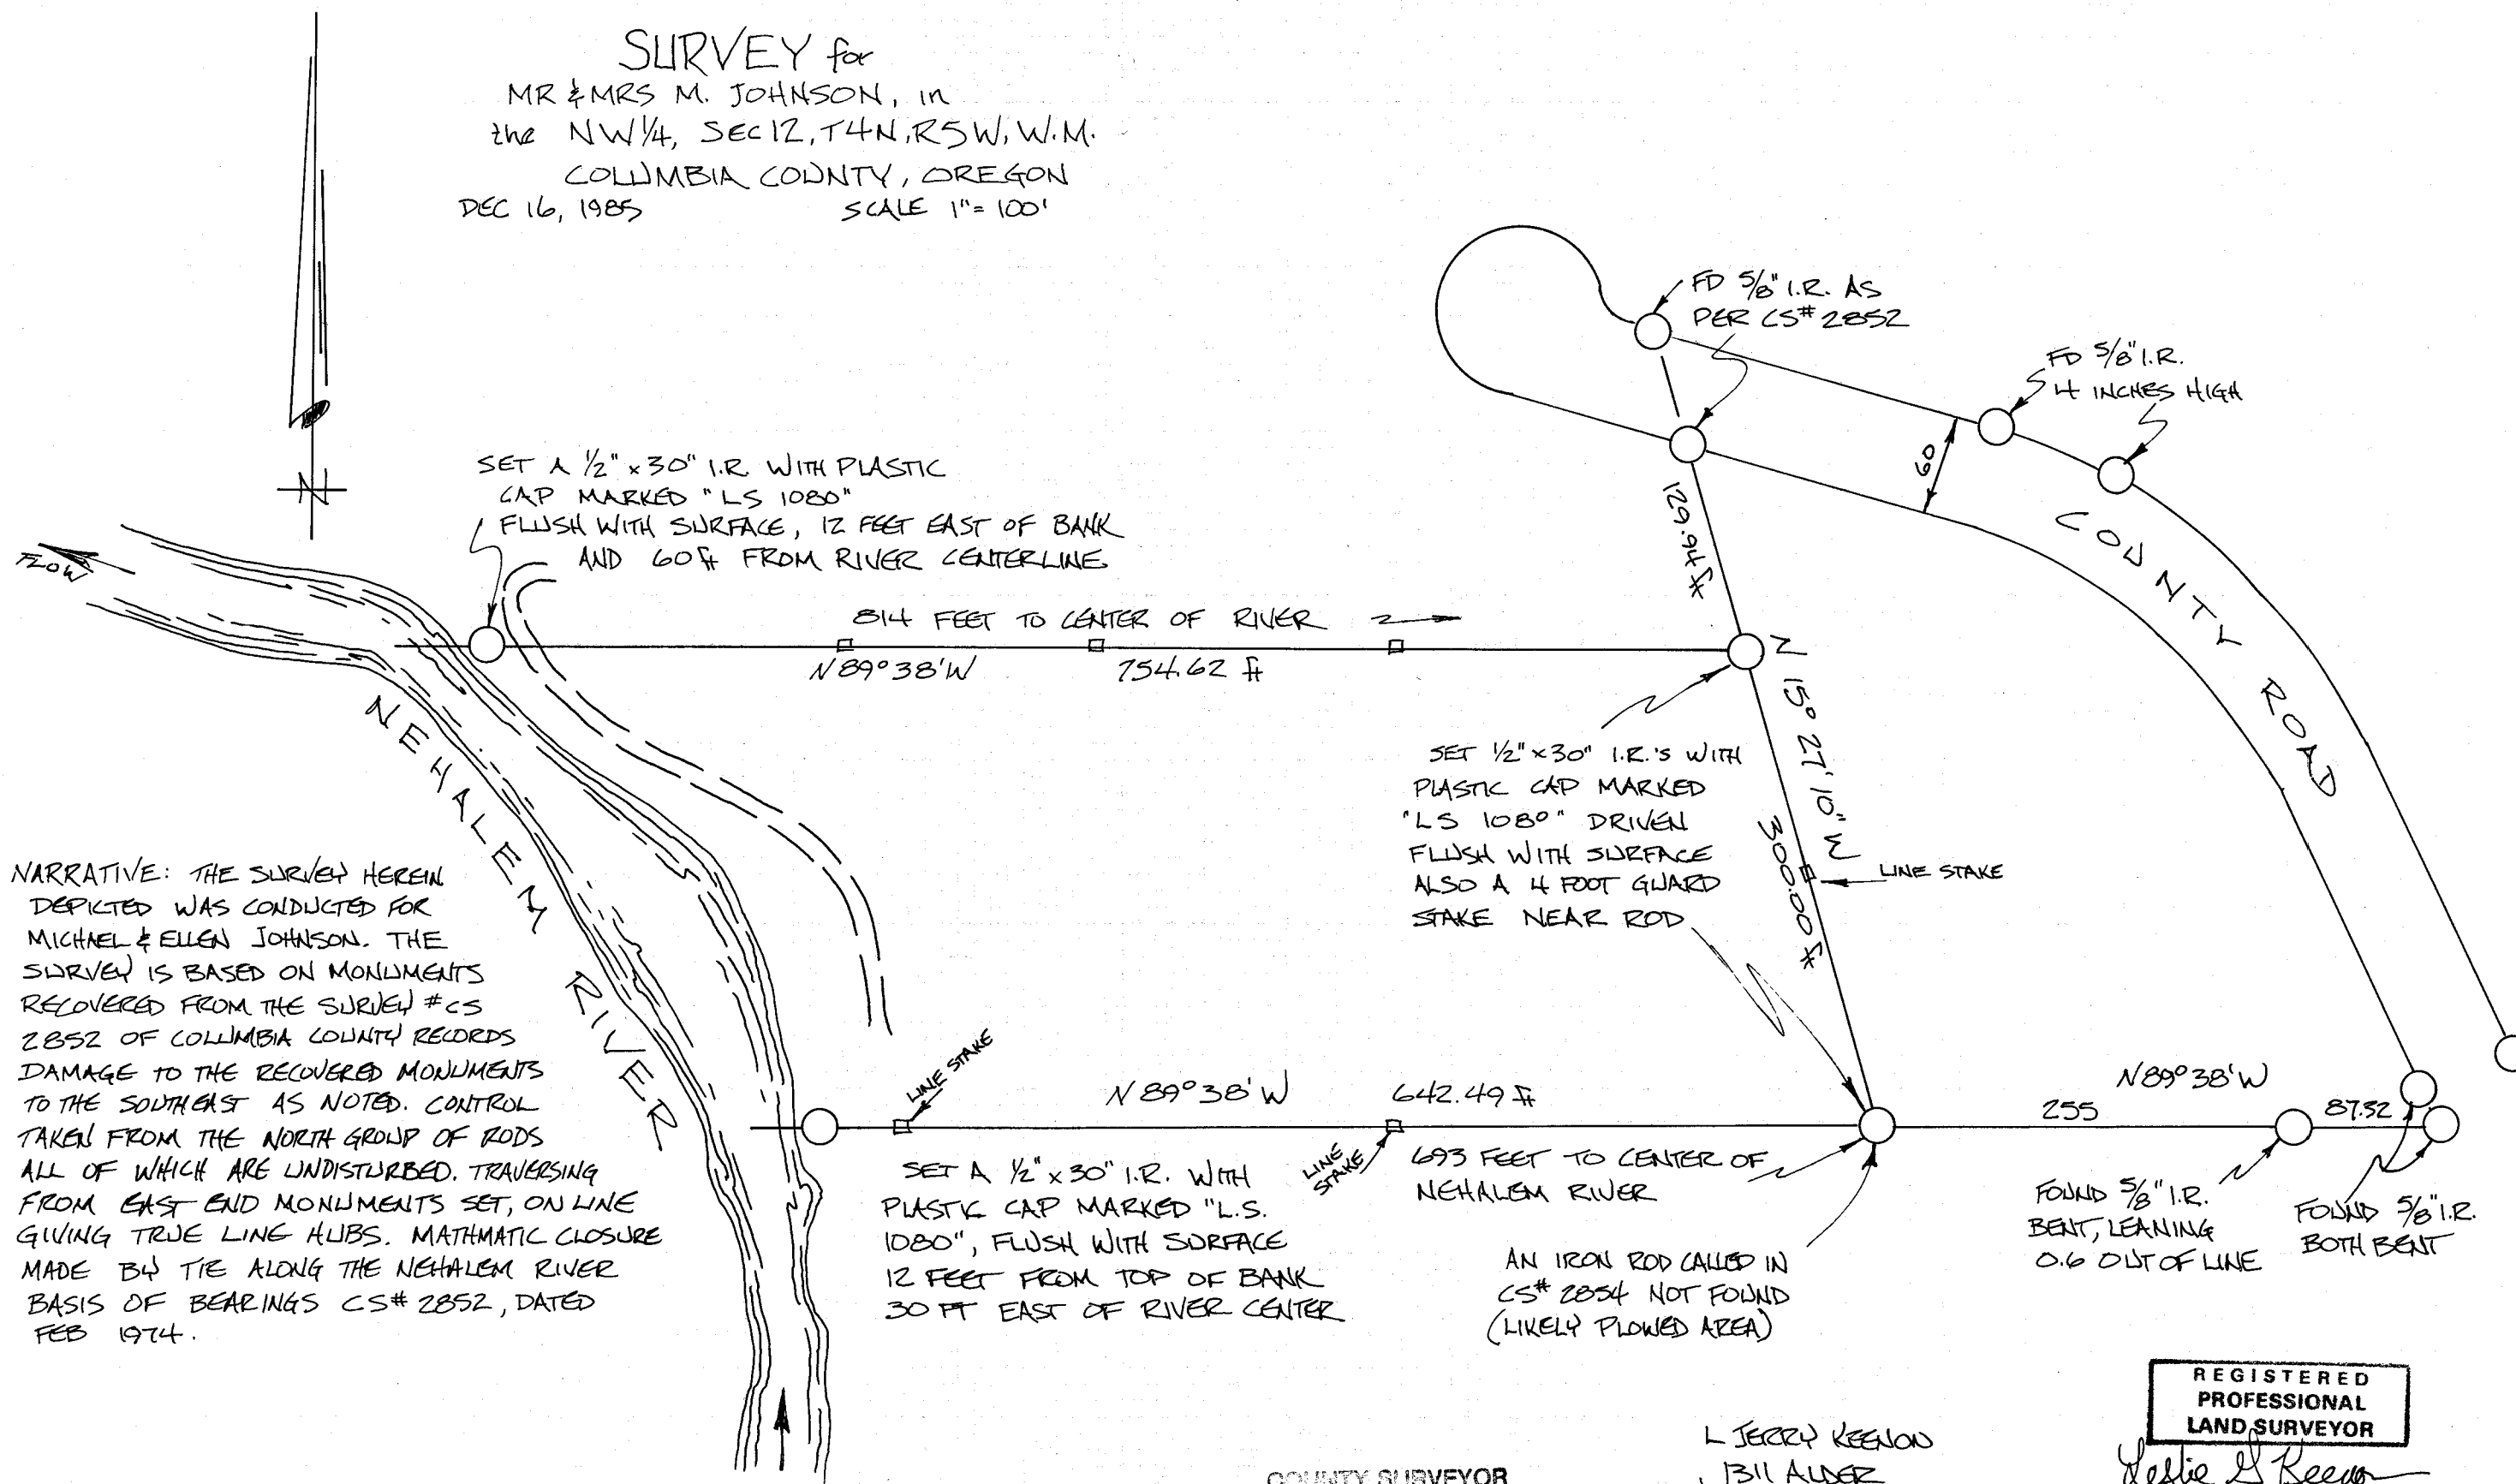 SURVEY for
MR & MRS M. JOHNSON, in
the NW 1/4, SEC 12, T4N, R5W, W.M.
COLUMBIA COUNTY, OREGON
DEC 16, 1985 SCALE 1"= 100'
N
FLOW
SET A 1/2" x 30" I.R. WITH PLASTIC
CAP MARKED "LS 1080"
FLUSH WITH SURFACE, 12 FEET EAST OF BANK
AND 60 ft FROM RIVER CENTERLINE
FD 5/8" I.R. AS
PER CS# 2852
FD 5/8" I.R.
4 INCHES HIGH
60
COUNTY ROAD
129.94 ft
814 FEET TO CENTER OF RIVER
N 89° 38' W 754.62 ft
N 15° 27' 10" W
300.00 ft
LINE STAKE
SET 1/2" x 30" I.R.'S WITH
PLASTIC CAP MARKED
"LS 1080" DRIVEN
FLUSH WITH SURFACE
ALSO A 4 FOOT GUARD
STAKE NEAR ROD
NEHALEM RIVER
NARRATIVE: THE SURVEY HEREIN
DEPICTED WAS CONDUCTED FOR
MICHAEL & ELLEN JOHNSON. THE
SURVEY IS BASED ON MONUMENTS
RECOVERED FROM THE SURVEY # CS
2852 OF COLUMBIA COUNTY RECORDS
DAMAGE TO THE RECOVERED MONUMENTS
TO THE SOUTHEAST AS NOTED. CONTROL
TAKEN FROM THE NORTH GROUP OF RODS
ALL OF WHICH ARE UNDISTURBED. TRAVERSING
FROM EAST END MONUMENTS SET, ON LINE
GIVING TRUE LINE HUBS. MATHMATIC CLOSURE
MADE BY TIE ALONG THE NEHALEM RIVER
BASIS OF BEARINGS CS# 2852, DATED
FEB 1974.
LINE STAKE
N 89° 38' W 642.49 ft
N 89° 38' W
255
87.32
SET A 1/2" x 30" I.R. WITH
PLASTIC CAP MARKED "L.S.
1080", FLUSH WITH SURFACE
12 FEET FROM TOP OF BANK
30 FT EAST OF RIVER CENTER
LINE
STAKE
693 FEET TO CENTER OF
NEHALEM RIVER
AN IRON ROD CALLED IN
CS# 2854 NOT FOUND
(LIKELY PLOWED AREA)
FOUND 5/8" I.R.
BENT, LEANING
0.6 OUT OF LINE
FOUND 5/8" I.R.
BOTH BENT
REGISTERED
PROFESSIONAL
LAND SURVEYOR
Leslie G Keenon
L JERRY KEENON
1311 ALDER
COUNTY SURVEYOR